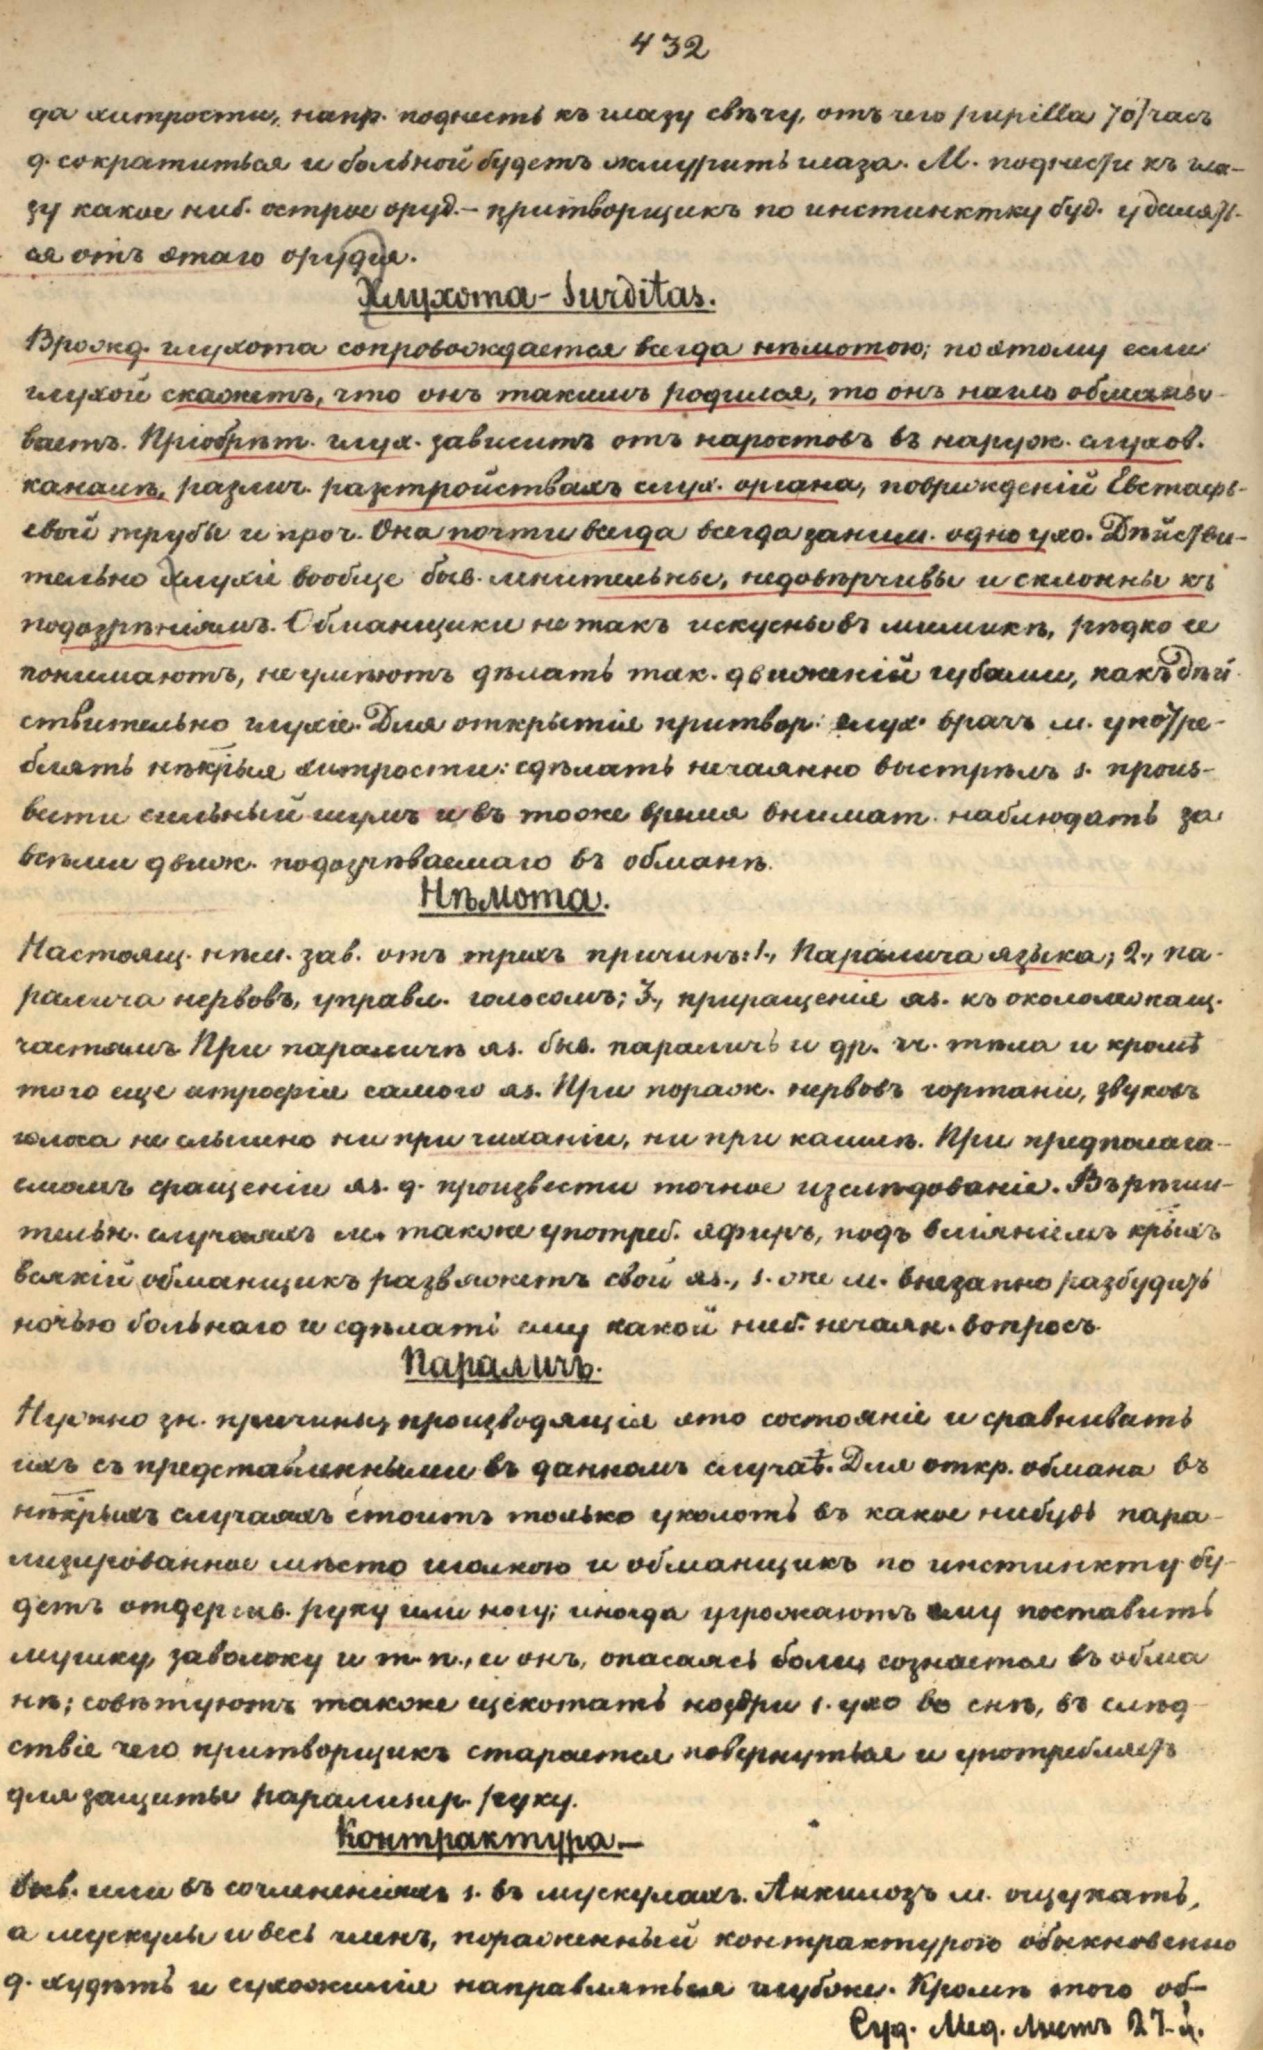 432
да хитрости, напр. поднесть къ глазу свѣчу, отъ чего pupilla тотчасъ
д. сократиться и больной будетъ жмурить глаза. М. поднести къ гла-
зу какое ниб. острое оруд. - притворщикъ по инстинктку буд. удалять-
ся отъ этаго орудія.
Глухота - Surditas.
Врожд. глухота сопровождается всегда нѣмотою; поэтому если
глухой скажетъ, что онъ такимъ родился, то онъ нагло обманы-
ваетъ. Пріобрѣт. глух. зависитъ отъ наростовъ въ наруж. слухов.
каналѣ, различ. разстройствахъ слух. органа, поврежденій Евстафь-
евой трубы и проч. Она почти всегда всегда заним. одно ухо. Дѣйстви-
тельно глухіе вообще быв. мнительны, недовѣрчивы и склонны къ
подозрѣніямъ. Обманщики не такъ искусны въ мимикѣ, рѣдко ее
понимаютъ, не умѣютъ дѣлать так. движеній губами, какъ дѣй-
ствительно глухіе. Для открытія притвор. глух. врачъ м. употре-
блять нѣкрыя хитрости: сдѣлать нечаянно выстрѣлъ s. произ-
вести сильный шумъ и въ тоже время внимат. наблюдать за
всѣми движ. подозрѣваемаго въ обманѣ.
Нѣмота.
Настоящ. нѣм. зав. отъ трехъ причинъ: 1., Паралича языка; 2., па-
ралича нервовъ, управл. голосомъ; 3., приращенія яз. къ околожащ.
частямъ. При параличѣ яз. быв. параличъ и др. чч. тѣла и кромѣ
того еще атрофія самого яз. При пораж. нервовъ гортани, звуковъ
голоса не слышно ни при чиханіи, ни при кашлѣ. При предполага-
емомъ сращеніи яз. д. произвести точное изслѣдованіе. Въ рѣши-
тельн. случаяхъ м. также употреб. эфиръ, подъ вліяніемъ крыхъ
всякій обманщикъ развяжетъ свой яз., s. же м. внезапно разбудить
ночью больнаго и сдѣлать ему какой ниб. нечаян. вопросъ.
Параличъ.
Нужно зн. причины, производящія это состояніе и сравнивать
ихъ съ представленными въ данномъ случаѣ. Для откр. обмана въ
нѣкрыхъ случаяхъ стоитъ только уколоть въ какое нибудь пара-
лизированное мѣсто иголкою и обманщикъ по инстинкту бу-
детъ отдергив. руку или ногу; иногда угрожаютъ ему поставить
мушку, заволоку и т. п., и онъ, опасаясь боли, сознается въ обма
нѣ; совѣтуютъ также щекотать ноздри s. ухо во снѣ, въ слѣд-
ствіе чего притворщикъ старается повернуться и употребляетъ
для защиты парализир. руку.
Контрактура. -
Быв. или въ сочлененіяхъ s. въ мускулахъ. Анкилозъ м. ощупать,
а мускулы и весь членъ, пораженный контрактурою обыкновенно
д. худѣть и сухожилія направляться глубже. Кромѣ того об-
Суд. Мед. Листъ 27-й.